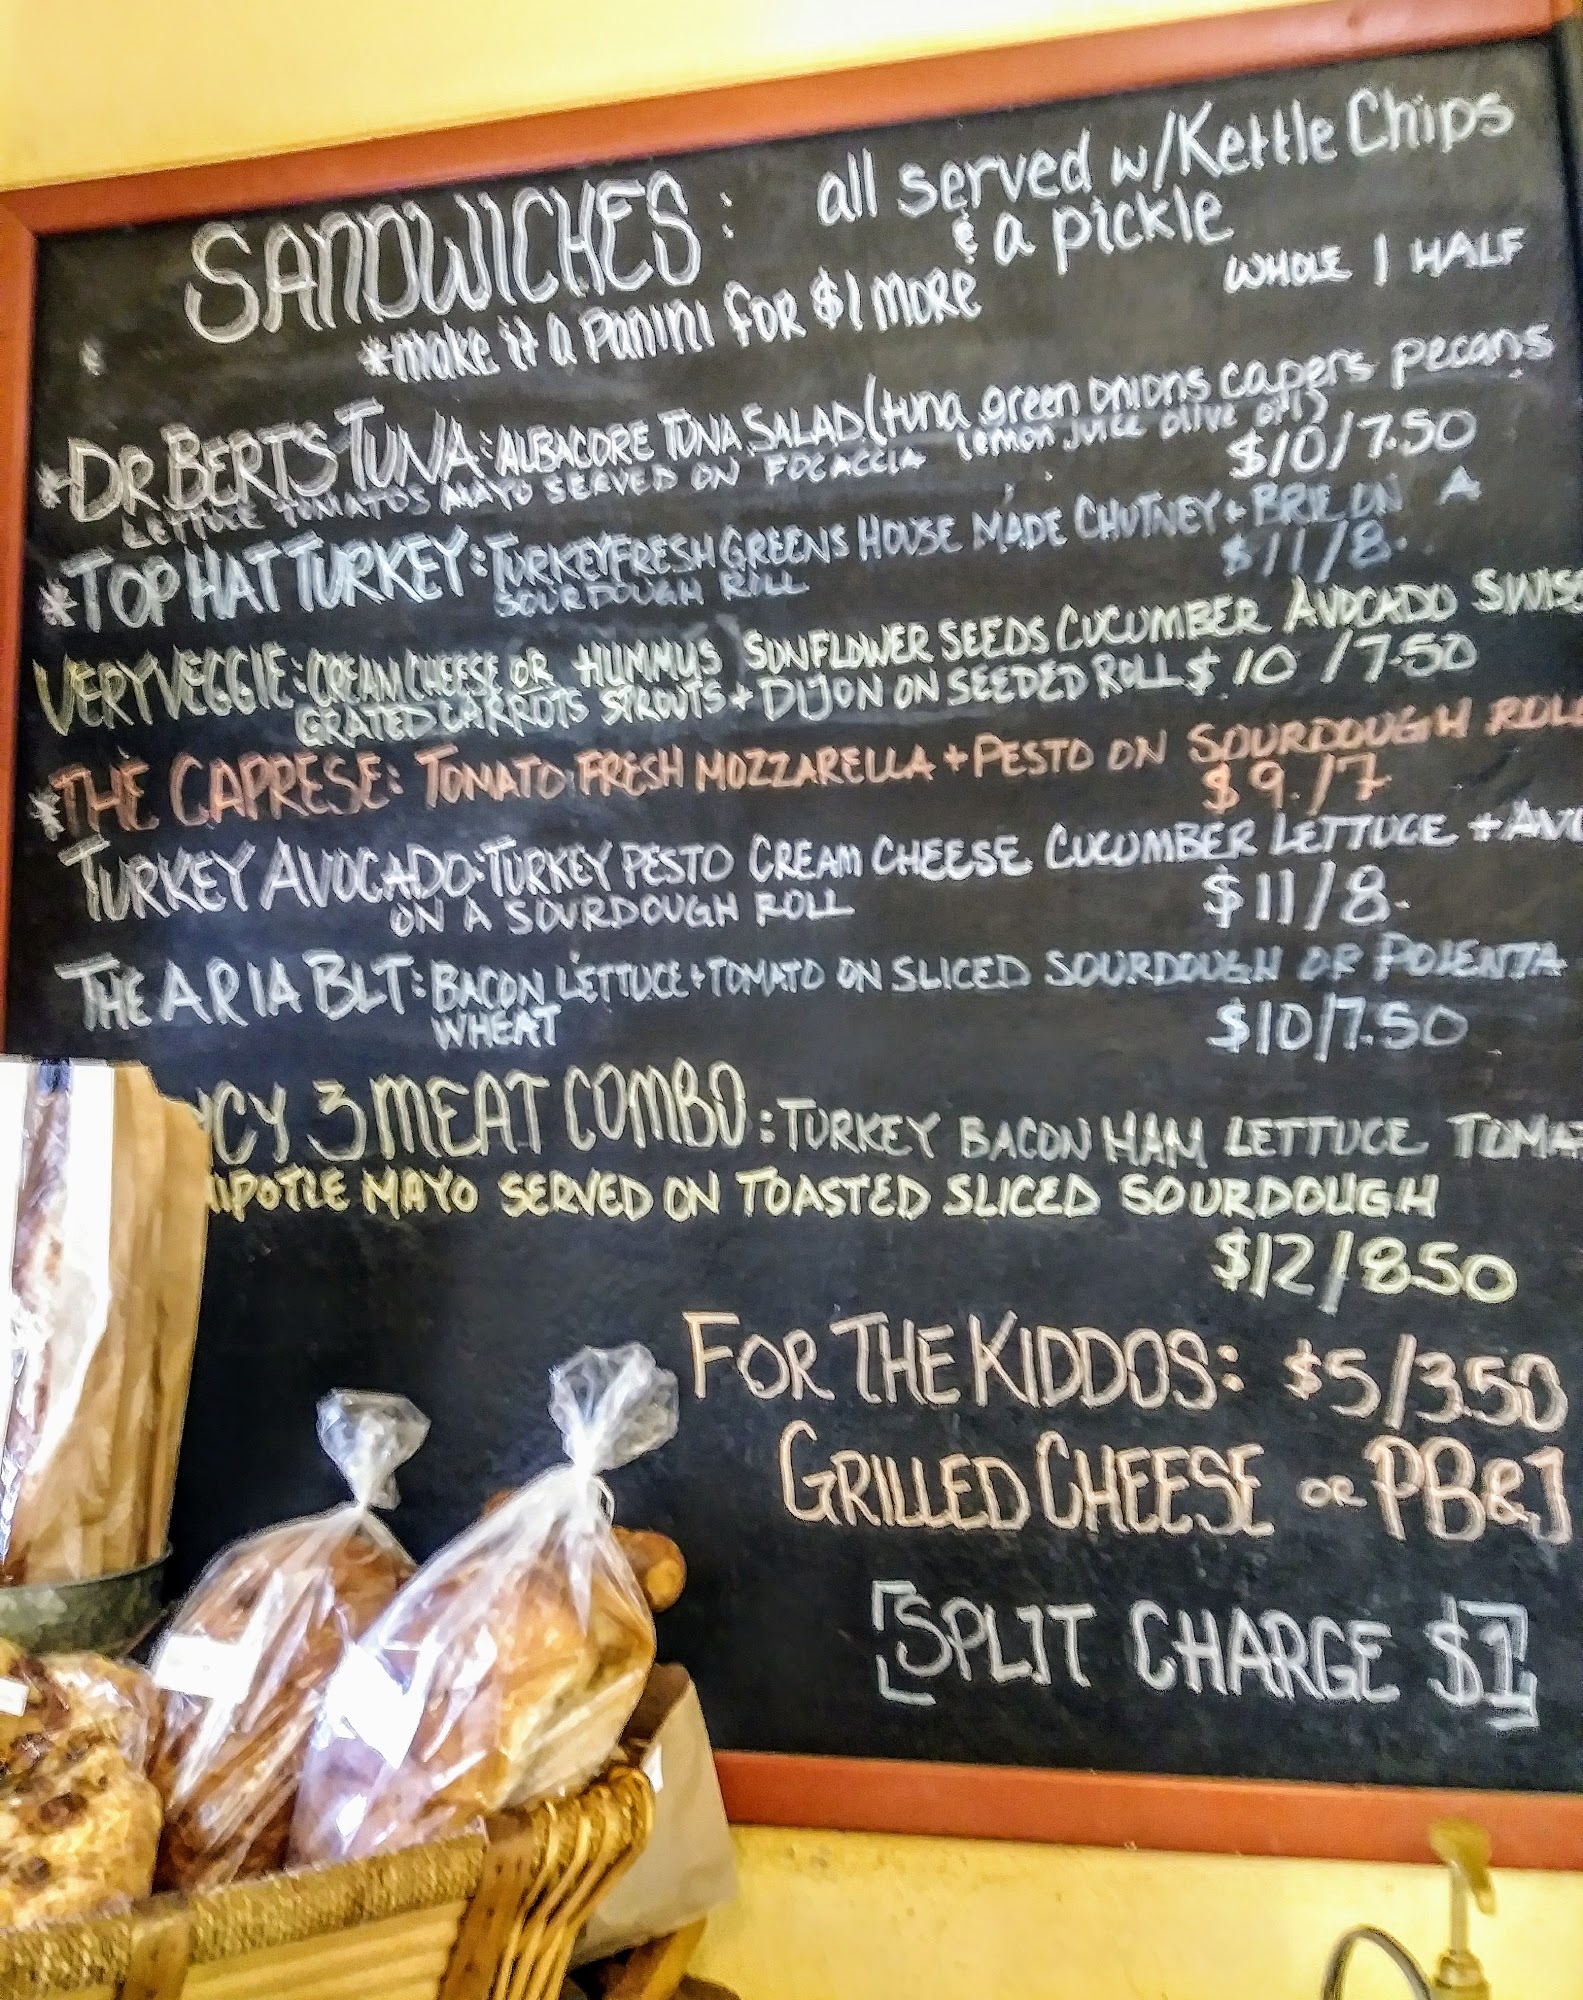 SANDWICHES: all served w/Kettle Chips
& a pickle
*make it a panini for $1 more
WHOLE | HALF
*DR BERTS TUNA: ALBACORE TUNA SALAD (tuna green onions capers pecans
lemon juice olive oil)
LETTUCE TOMATOS MAYO SERVED ON FOCACCIA
$10/7.50
*TOP HAT TURKEY: TURKEY FRESH GREENS HOUSE MADE CHUTNEY + BRIE ON A
SOURDOUGH ROLL
$11/8.
VERY VEGGIE: CREAM CHEESE OR HUMMUS SUNFLOWER SEEDS CUCUMBER AVOCADO SWISS
GRATED CARROTS SPROUTS + DIJON ON SEEDED ROLL $10/7.50
*THE CAPRESE: TOMATO FRESH MOZZARELLA + PESTO ON SOURDOUGH ROLL
$9./7
TURKEY AVOCADO: TURKEY PESTO CREAM CHEESE CUCUMBER LETTUCE + AVO
ON A SOURDOUGH ROLL
$11/8.
THE ARIA BLT: BACON LETTUCE + TOMATO ON SLICED SOURDOUGH OR POLENTA
WHEAT
$10/7.50
CY 3 MEAT COMBO: TURKEY BACON HAM LETTUCE TOMA
IPOTLE MAYO SERVED ON TOASTED SLICED SOURDOUGH
$12/8.50
FOR THE KIDDOS: $5/3.50
GRILLED CHEESE OR PB&J
[SPLIT CHARGE $1]